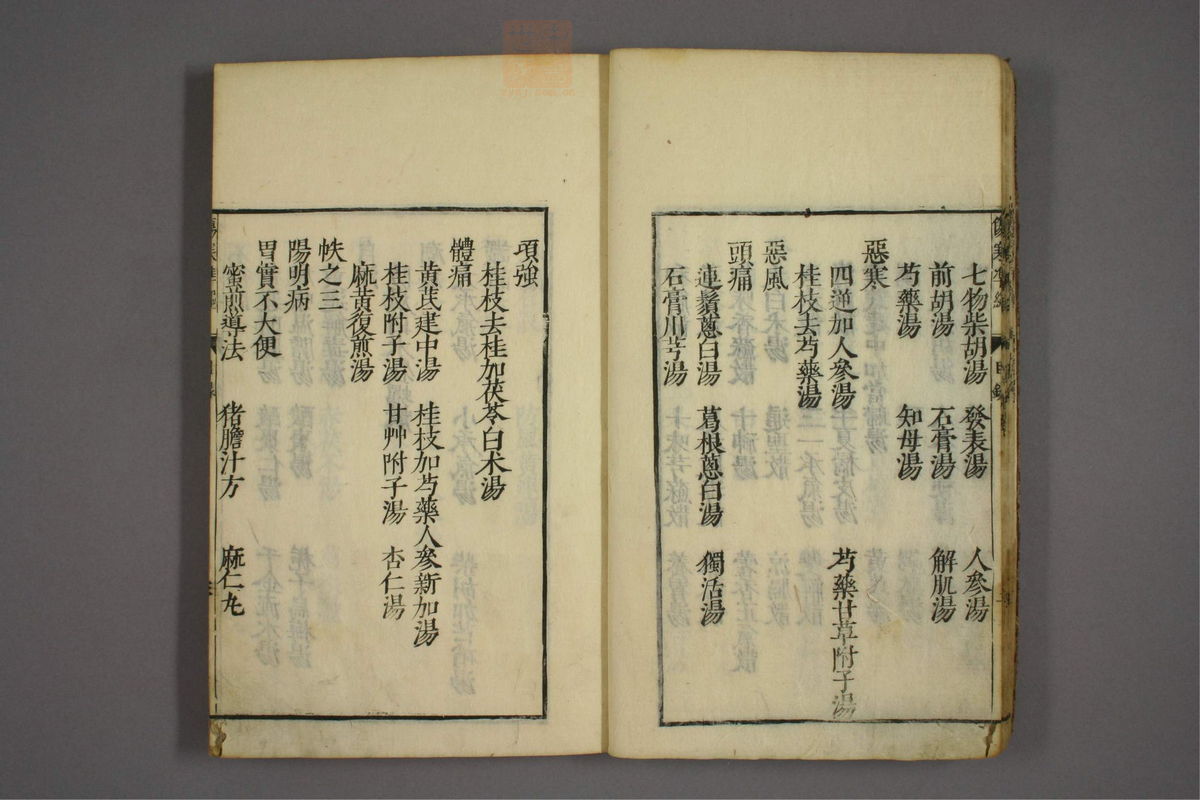 七物柴胡湯 發表湯 人參湯
前胡湯 石膏湯 解肌湯
芍藥湯 知母湯
惡寒
四逆加人參湯 芍藥甘草附子湯
桂枝去芍藥湯
惡風
頭痛
連鬚蔥白湯 葛根蔥白湯 獨活湯
石膏川芎湯
項強
桂枝去桂加茯苓白朮湯
體痛
黃芪建中湯 桂枝加芍藥人參新加湯
桂枝附子湯 甘艸附子湯 杏仁湯
麻黃復煎湯
帙之三
陽明病
胃實不大便
蜜煎導法 猪膽汁方 麻仁丸